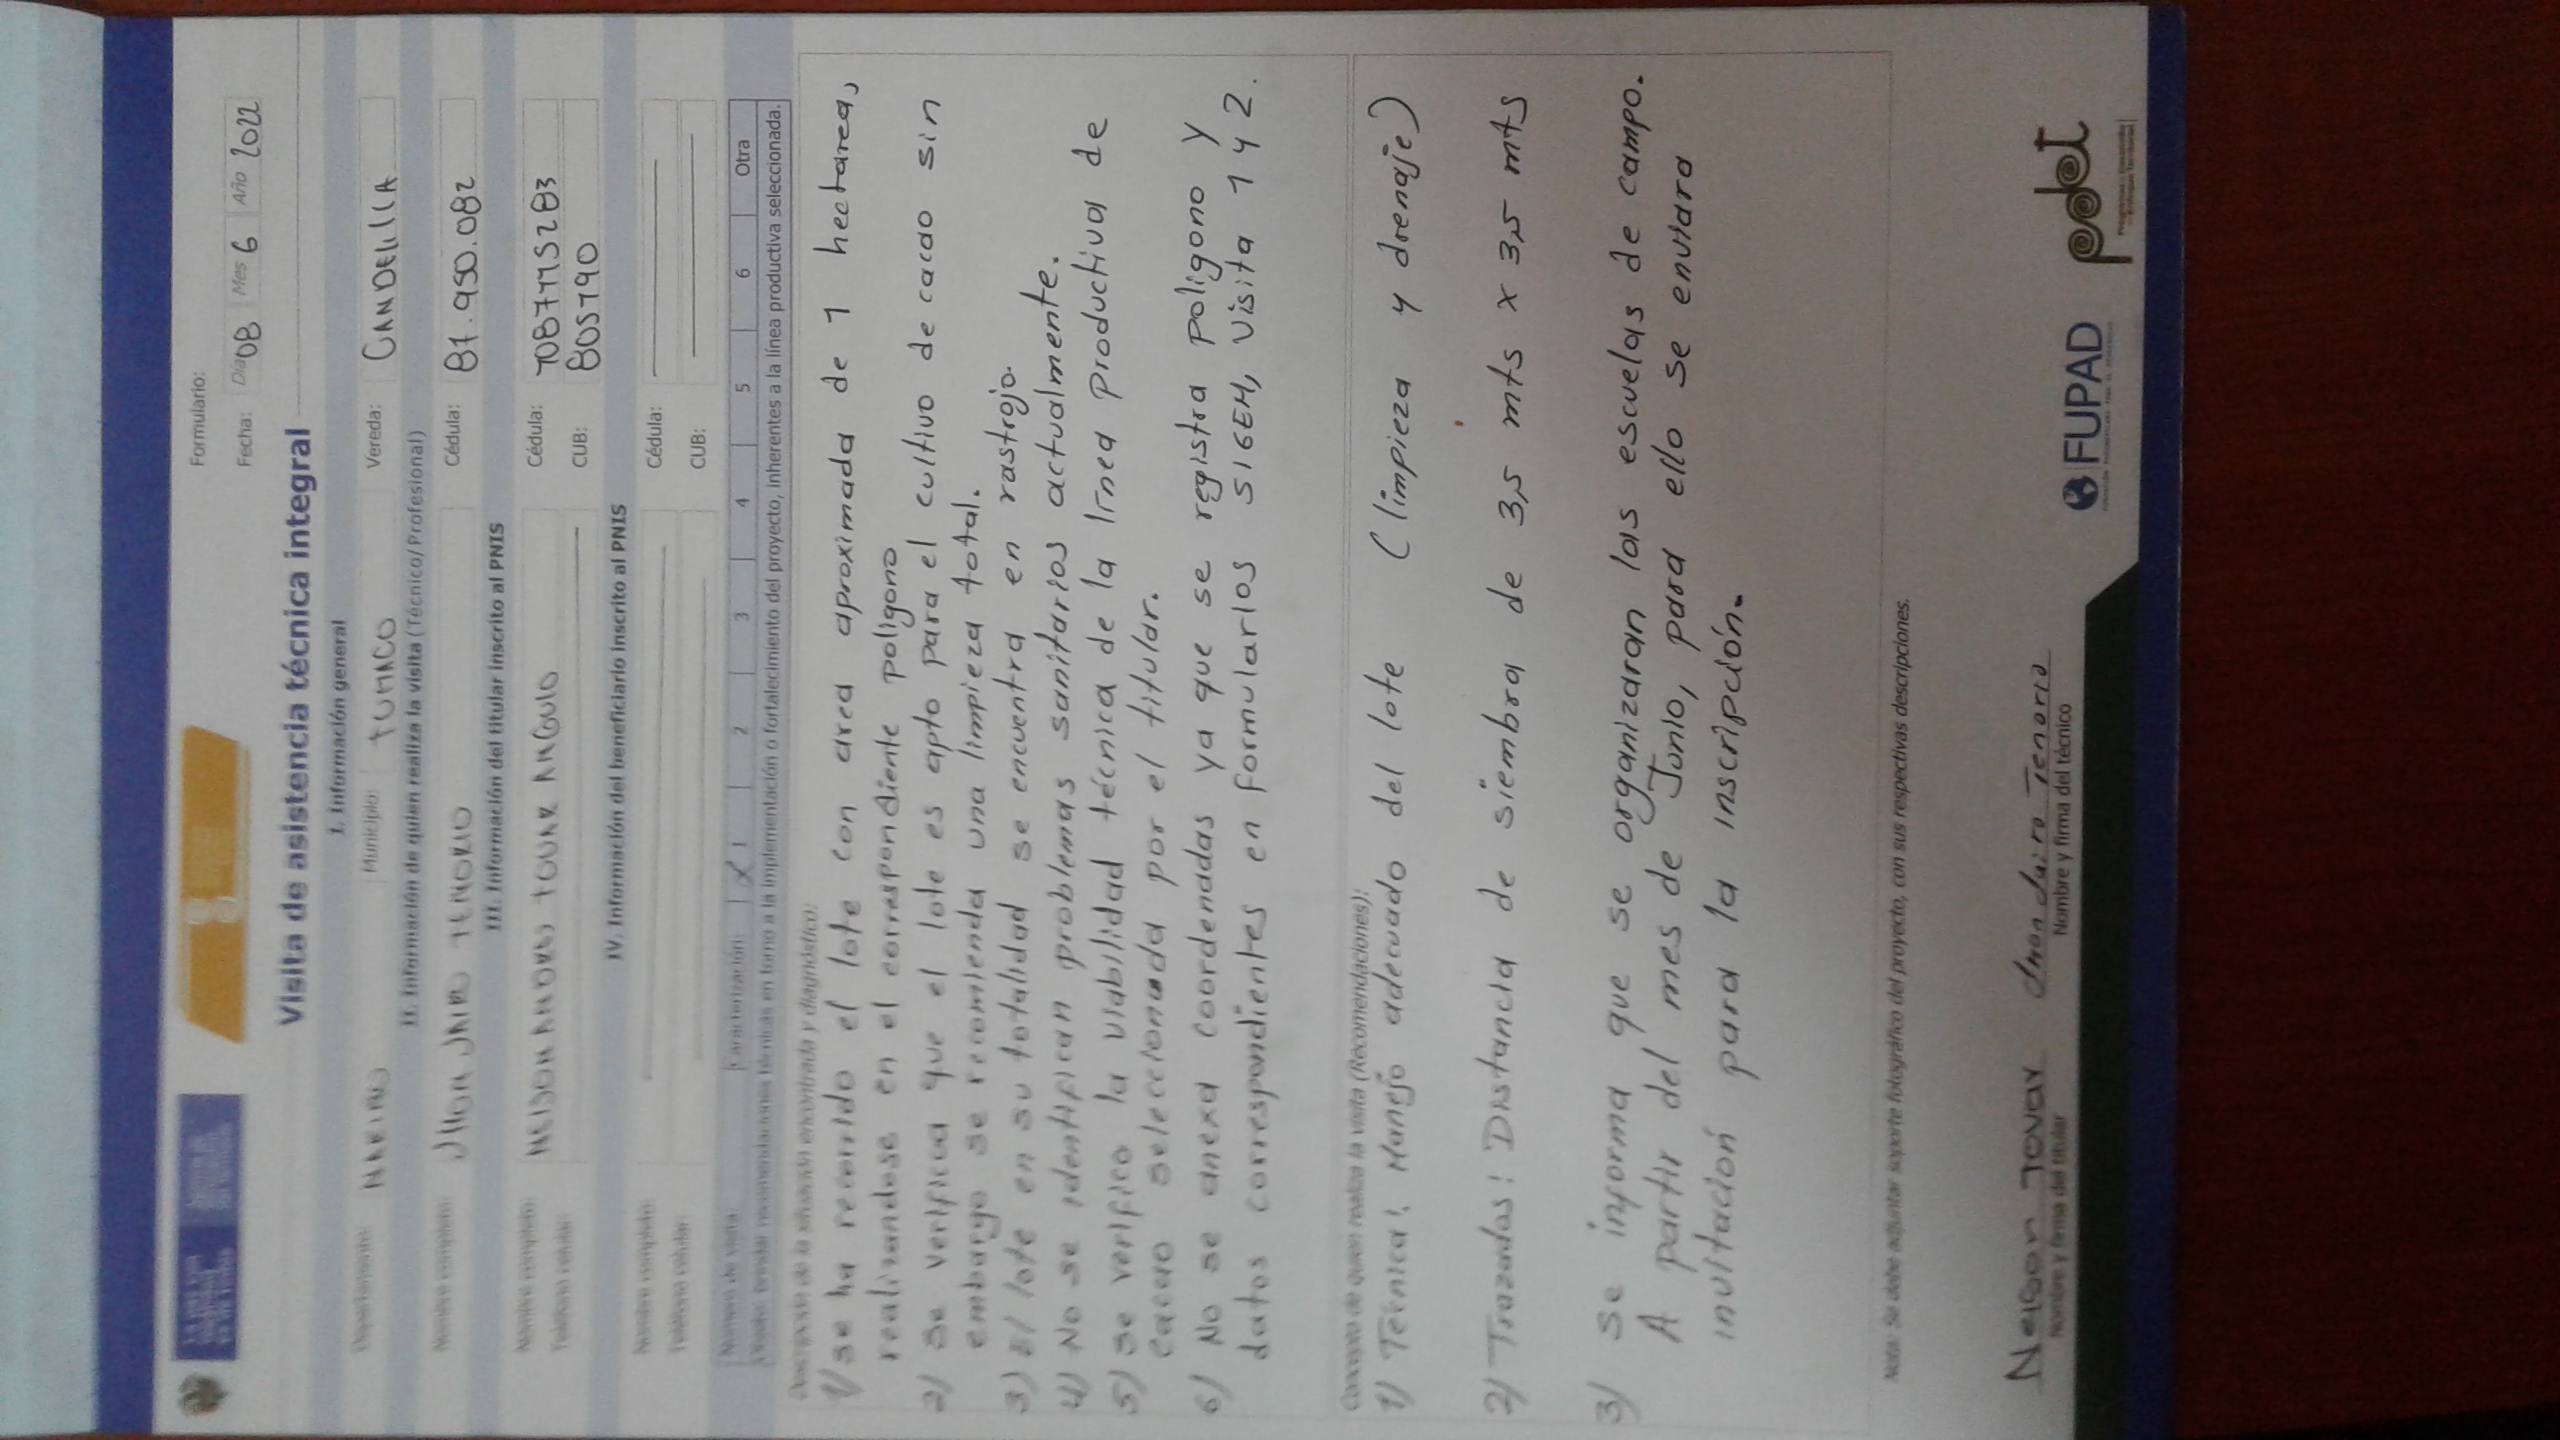 Formulario:
Fecha: Día 08 Mes 6 Año 2022
Visita de asistencia técnica integral
I. Información general
Departamento: NARIÑO Municipio: TUMACO Vereda: CANDELILLA
II. Información de quien realiza la visita (Técnico/Profesional)
Nombre completo: JHON JAIRO TENORIO Cédula: 87.950.082
III. Información del titular inscrito al PNIS
Nombre completo: NELSON ANDRES TOVAR ANGULO Cédula: 1087795283
Teléfono celular: CUB: 805790
IV. Información del beneficiario inscrito al PNIS
Nombre completo: Cédula:
Teléfono celular: CUB:
Número de visita: Caracterización: X 1 2 3 4 5 6 Otra
recomendaciones técnicas en torno a la implementación o fortalecimiento del proyecto, inherentes a la línea productiva seleccionada.
Descripción de la situación encontrada y diagnóstico:
1) se ha recorrido el lote con area aproximada de 1 hectarea,
realizandose en el correspondiente poligono
2) se verifica que el lote es apto para el cultivo de cacao sin
embargo se recomienda una limpieza total.
3) El lote en su totalidad se encuentra en rastrojo.
4) No se identifican problemas sanitarios actualmente.
5) se verifico la viabilidad técnica de la línea productiva de
cacao seleccionada por el titular.
6) No se anexa coordenadas ya que se registra poligono y
datos correspondientes en formularios SIGEM, visita 1 y 2.
Concepto de quien realiza la visita (Recomendaciones):
1) Técnica: Manejo adecuado del lote (limpieza y drenaje)
2) Trazados: Distancia de siembra de 3,5 mts x 3,5 mts
3) se informa que se organizaran las escuelas de campo.
A partir del mes de Junio, para ello se enviara
invitación para la inscripción.
Nota: Se debe adjuntar soporte fotográfico del proyecto, con sus respectivas descripciones.
Nelson Tovar Jhon Jairo Tenorio
Nombre y firma del titular Nombre y firma del técnico
FUPAD
pdet